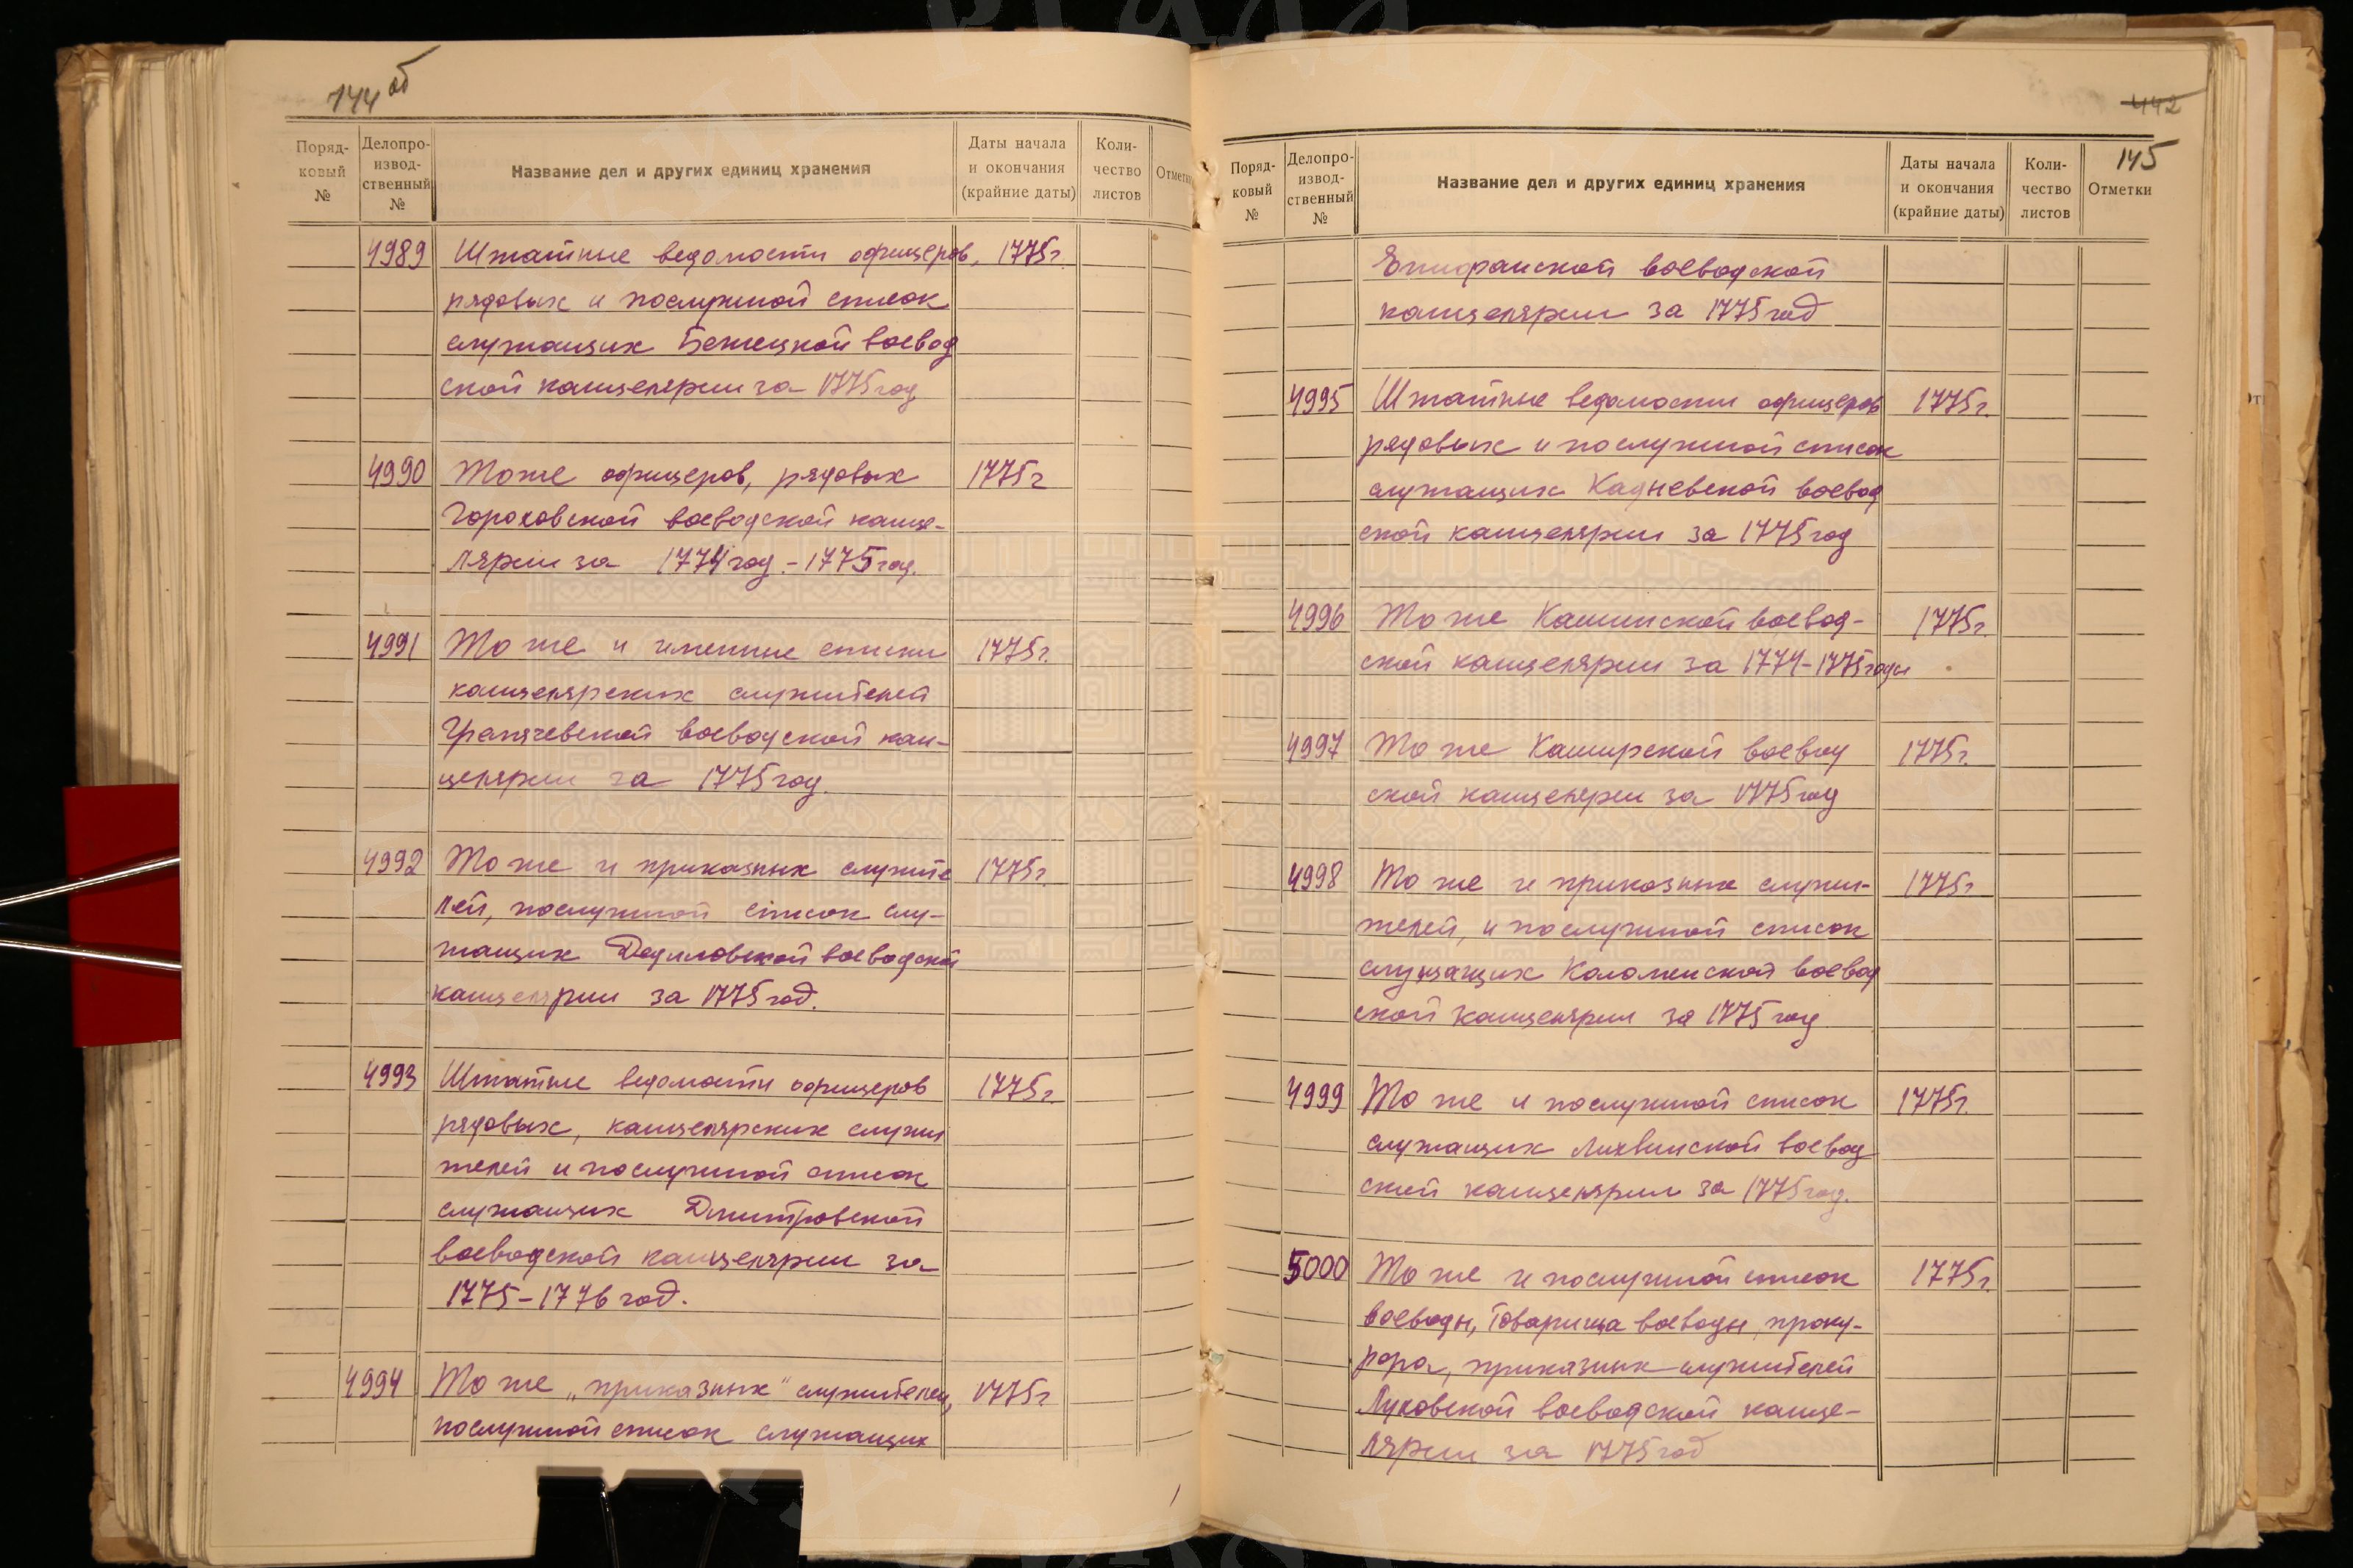 144 об
Поряд-
ковый
№
Делопро-
извод-
ственный
№
Название дел и других единиц хранения
Даты начала
и окончания
(крайние даты)
Коли-
чество
листов
Отметки
4989 Штатные ведомости офицеров, 1775г
рядовых и послужной список
служащих Бежецкой воевод
ской канцелярии за 1775 год
4990 То же офицеров, рядовых 1775г
Гороховской воеводской канце-
лярии за 1774 год - 1775 год.
4991 То же и именные списки 1775г.
канцелярских служителей
воеводской кан-
целярии за 1775 год.
4992 То же и приказных служите 1775г.
лей, послужной список слу-
жащих Дедиловской воеводской
канцелярии за 1775 год.
4993 Штатные ведомости офицеров 1775г.
рядовых, канцелярских служи
телей и послужной список
служащих Дмитровской
воеводской канцелярии за
1775-1776 год.
4994 То же „приказных" служителей, 1775г
послужной список служащих
442
145
Поряд-
ковый
№
Делопро-
извод-
ственный
№
Название дел и других единиц хранения
Даты начала
и окончания
(крайние даты)
Коли-
чество
листов
Отметки
Епифанской воеводской
канцелярии за 1775 год
4995 Штатные ведомости офицеров 1775г.
рядовых и послужной список
служащих Кадневской воевод
ской канцелярии за 1775 год
4996 То же Кашинской воевод- 1775г.
ской канцелярии за 1774-1775 годы
4997 То же Каширской воевод 1775г.
ской канцелярии за 1775 год
4998 То же и приказных служи- 1775г
телей, и послужной список
служащих Коломенской воевод
ской канцелярии за 1775 год
4999 То же и послужной список 1775г.
служащих Лихвинской воевод
ской канцелярии за 1775 год.
5000 То же и послужной список 1775г.
воеводы, товарища воеводы, проку-
рора, приказных служителей
Луховской воеводской канце-
лярии за 1775 год